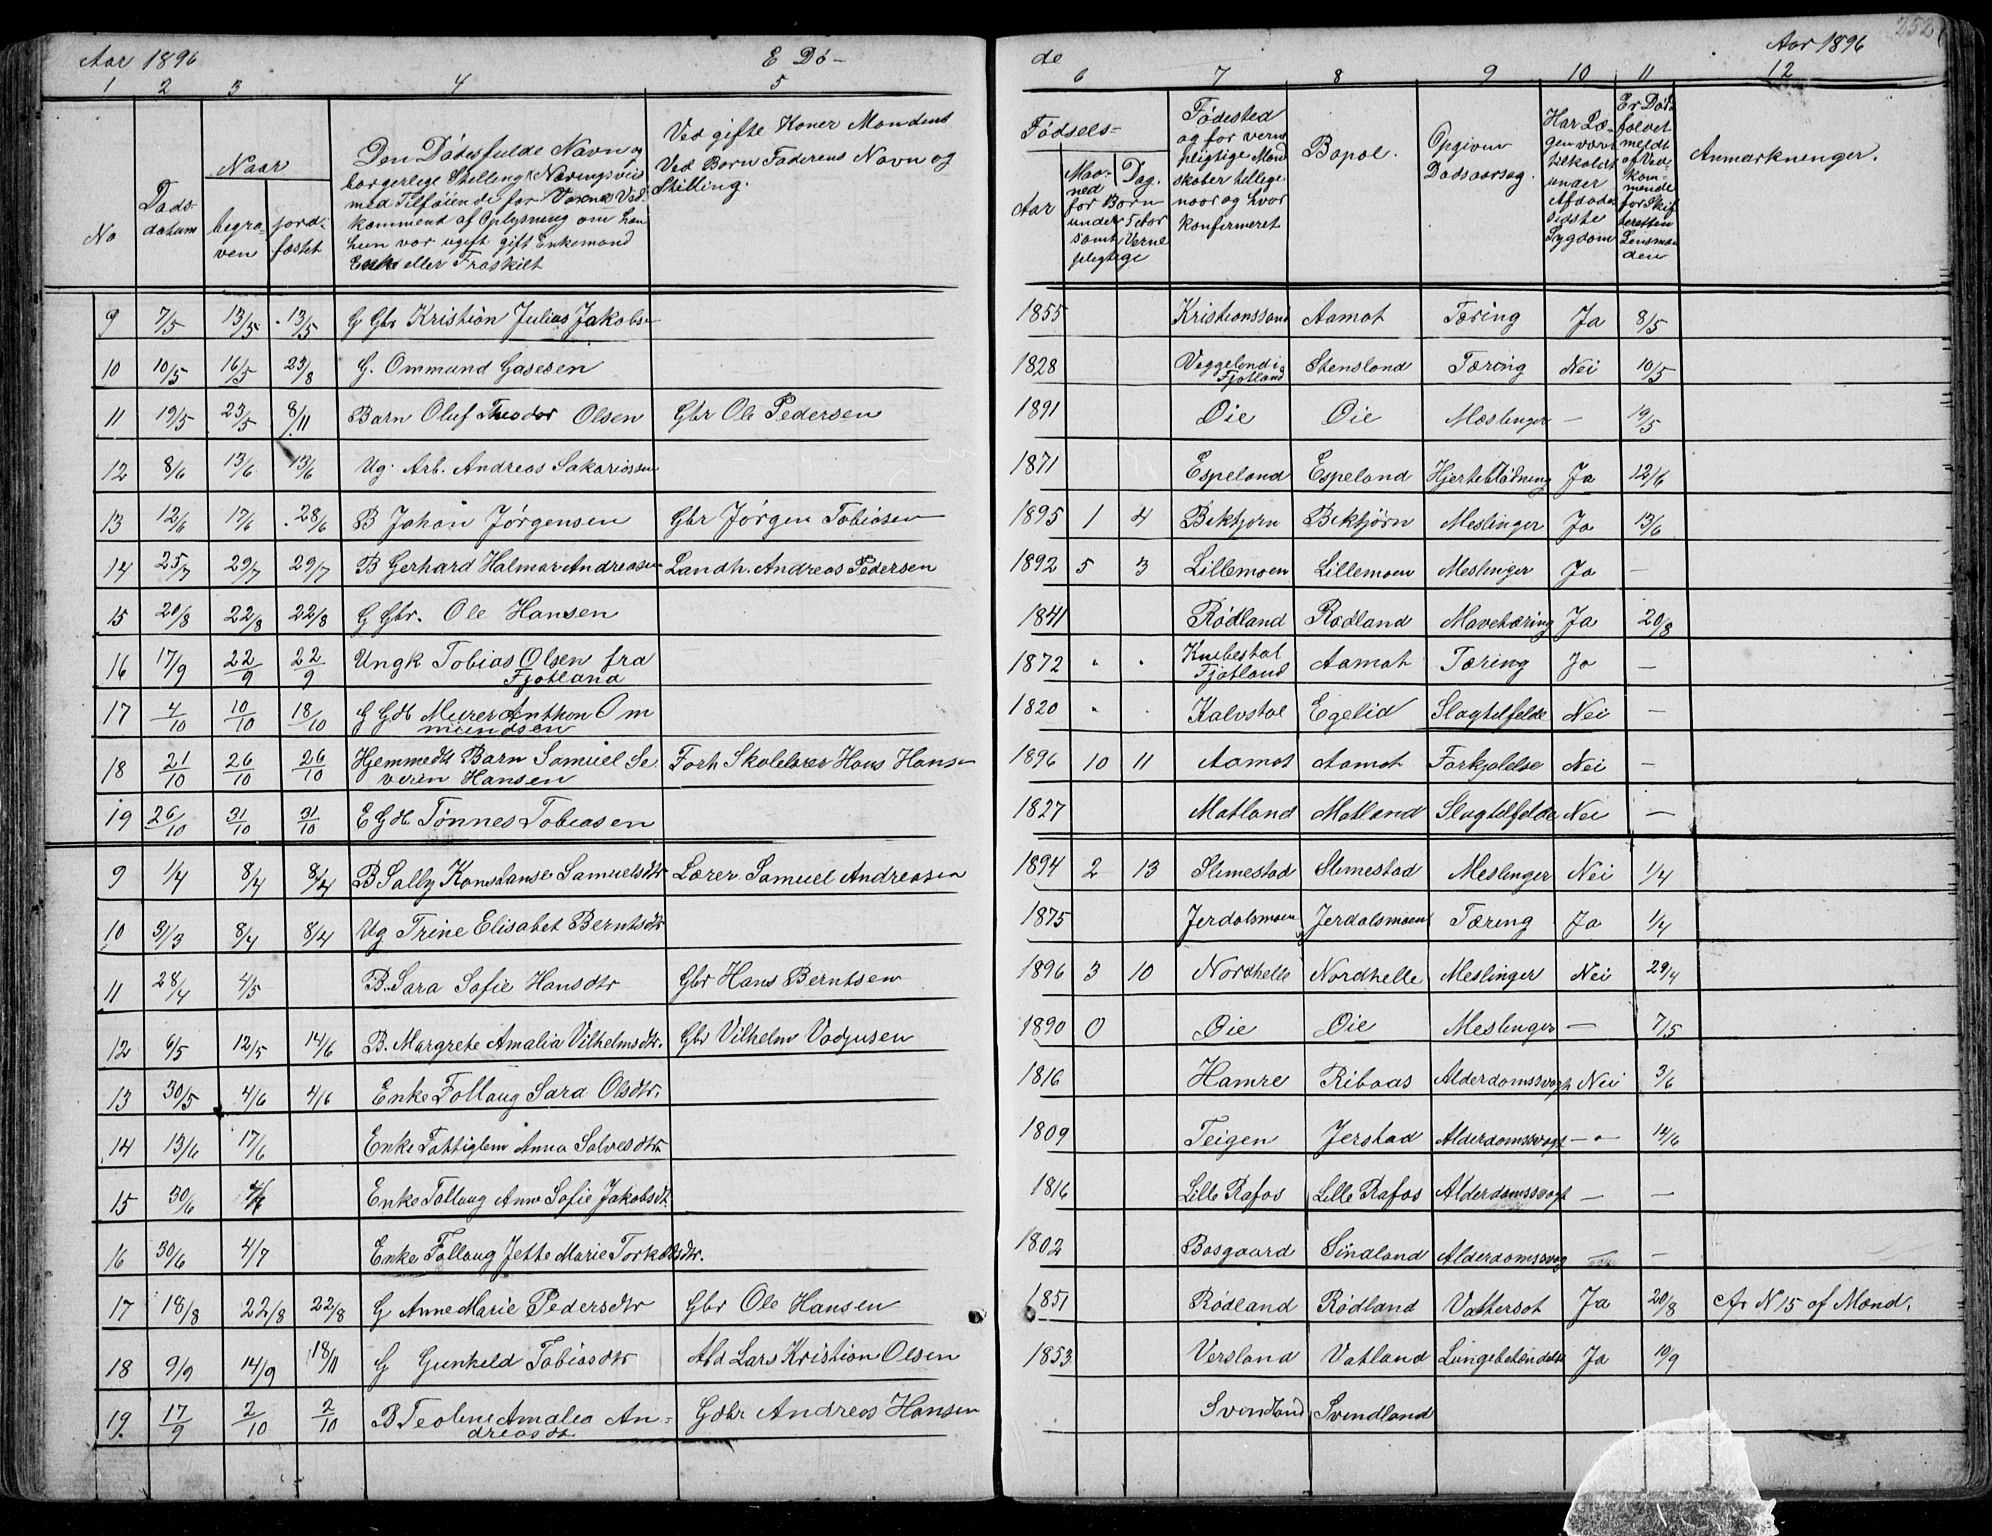 252
Aar 1896 E Dö- de Aar 1896
1 2 3 4 5 6 7 8 9 10 11 12
No
Døds-
datum
Naar
begra-
ven
jord-
fæstet
Den Dödesfulde Navn og
borgerlige Stelling (Næringsvei
med Tilføiende for Voxne Ved-
kommend af Oplysning om han
hun var ugift gift Enkemand
Enke eller Fraskilt
Ved gifte Koner Mandens
Ved Børn Faderens Navn og
Stilling.
Fødsels-
Aar
Maa-
ned
Dag.
for Børn
under 5 Aar
samt Verne
pligtige
Fødested
og for verne
pligtige Mand
skaber tillige
naar og hvor
konfirmeret
Bopæl.
Opgiven
Dødsaarsag.
Har Læ-
gen været
tilkaldt
under
Afdødes
sidste
Sygdom
Er Døds
faldet
meldt
af Ved-
kom-
mende
for Skif
teretten
Lensman
den
Anmærkninger.
9 7/5 13/5 13/5 G Gbr Kristian Julius Jakobsen 1855 Kristianssand Aamot Tæring Ja 8/5
10 10/5 16/5 23/8 G. Ommund Gasesen 1828 Veggeland i Fjotland Stensland Tæring Nei 10/5
11 19/5 23/5 8/11 Barn Oluf Theodor Olsen Gbr Ole Pedersen 1891 Øie Øie Mæslinger — 19/5
12 8/6 13/6 13/6 Ug. Arb. Andreas Sakariassen 1871 Espeland Espeland Hjerteblødning Ja 12/6
13 12/6 17/6 28/6 B Johan Jørgensen Gbr Jørgen Tobiasen 1895 1 4 Bekhjørn Bekhjørn Meslinger Ja 13/6
14 25/7 29/7 29/7 B Gerhard Halmar Andreasen Landh. Andreas Pedersen 1892 5 3 Lillemoen Lillemoen Meslinger Ja —
15 20/8 22/8 22/8 G Gbr. Ole Hansen 1841 Rødland Rødland Mavetæring Ja 20/8
16 17/9 22/9 22/9 Ungk Tobias Olsen fra
Fjotland 1872 " " Knibestøl
Fjotland Aamot Tæring Ja —
17 4/10 10/10 18/10 G Gdb Murer Anthon Om
mundsen 1820 " " Kalvstøl Egelid Slagtilfelde Nei —
18 21/10 26/10 26/10 Hjemmedt Barn Samuel Se
verin Hansen Forh Skolelærer Hans Hansen 1896 10 11 Aamot Aamot Forkjølelse Nei —
19 26/10 31/10 31/10 E Gdb Tønnes Tobiasen 1827 Matland Matland Slagtilfelde Nei —
9 1/4 8/4 8/4 B Sally Konstanse Samuelsdtr Lærer Samuel Andreasen 1894 2 13 Slimestad Slimestad Meslinger Nei 1/4
10 31/3 8/4 8/4 Ug Trine Elisabet Berntsdtr 1875 Jerdalsmoen Jerdalsmoen Tæring Ja 1/4
11 28/4 4/5 B. Sara Sofie Hansdtr Gbr Hans Berntsen 1896 3 10 Nordhelle Nordhelle Meslinger Nei 29/4
12 6/5 12/5 14/6 B. Margrete Amalia Vilhelmsdtr. Gbr Vilhelm Vadjusen 1890 0 Øie Øie Meslinger — 7/5
13 30/5 4/6 4/6 Enke Follaug Sara Olsdtr. 1816 Hamre Ribaas Alderdomssvagh Nei 3/6
14 13/6 17/6 Enke Fattiglem Anna Salvesdtr 1809 Teigen Jerstad Alderdomssvagh — 14/6
15 30/6 4/7 Enke Follaug Anne Sofie Jakobsdt. 1816 Lille Rafos Lille Rafos Alderdomssvagh — —
16 30/6 4/7 Enke Follaug Jette Marie Torkelsdtr. 1802 Bosgaard Sindland Alderdomssvag — —
17 18/8 22/8 22/8 G Anne Marie Pedersdtr Gbr Ole Hansen 1851 Rødland Rødland Vattersot Ja 20/8 cfr N 15 af Mænd.
18 9/9 14/9 18/11 G Gunheld Tobiasdtr Arb Lars Kristian Olsen 1853 Versland Vatland Lungebetændelse Ja 10/9
19. 17/9 2/10 2/10 B Teoline Amalia An-
dreasdt Gdbr Andreas Hansen Svindland Svindland